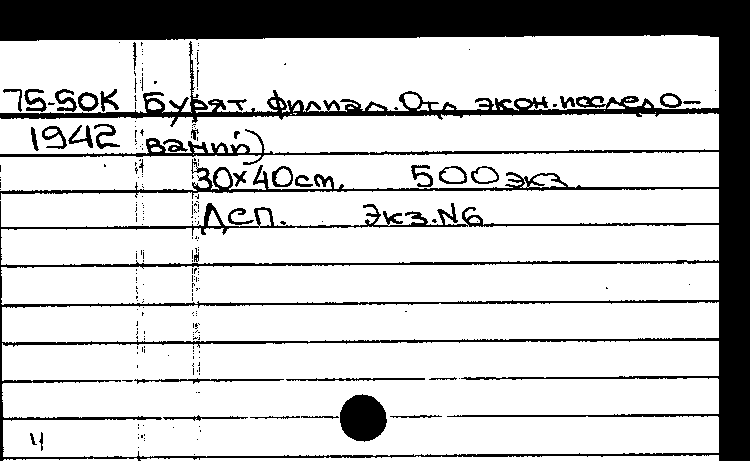 75-50К Бурят. филиал. Отд. экон. исследо-
1942 ваний).
30×40см. 500 экз.
ДСП. Экз. N6
4